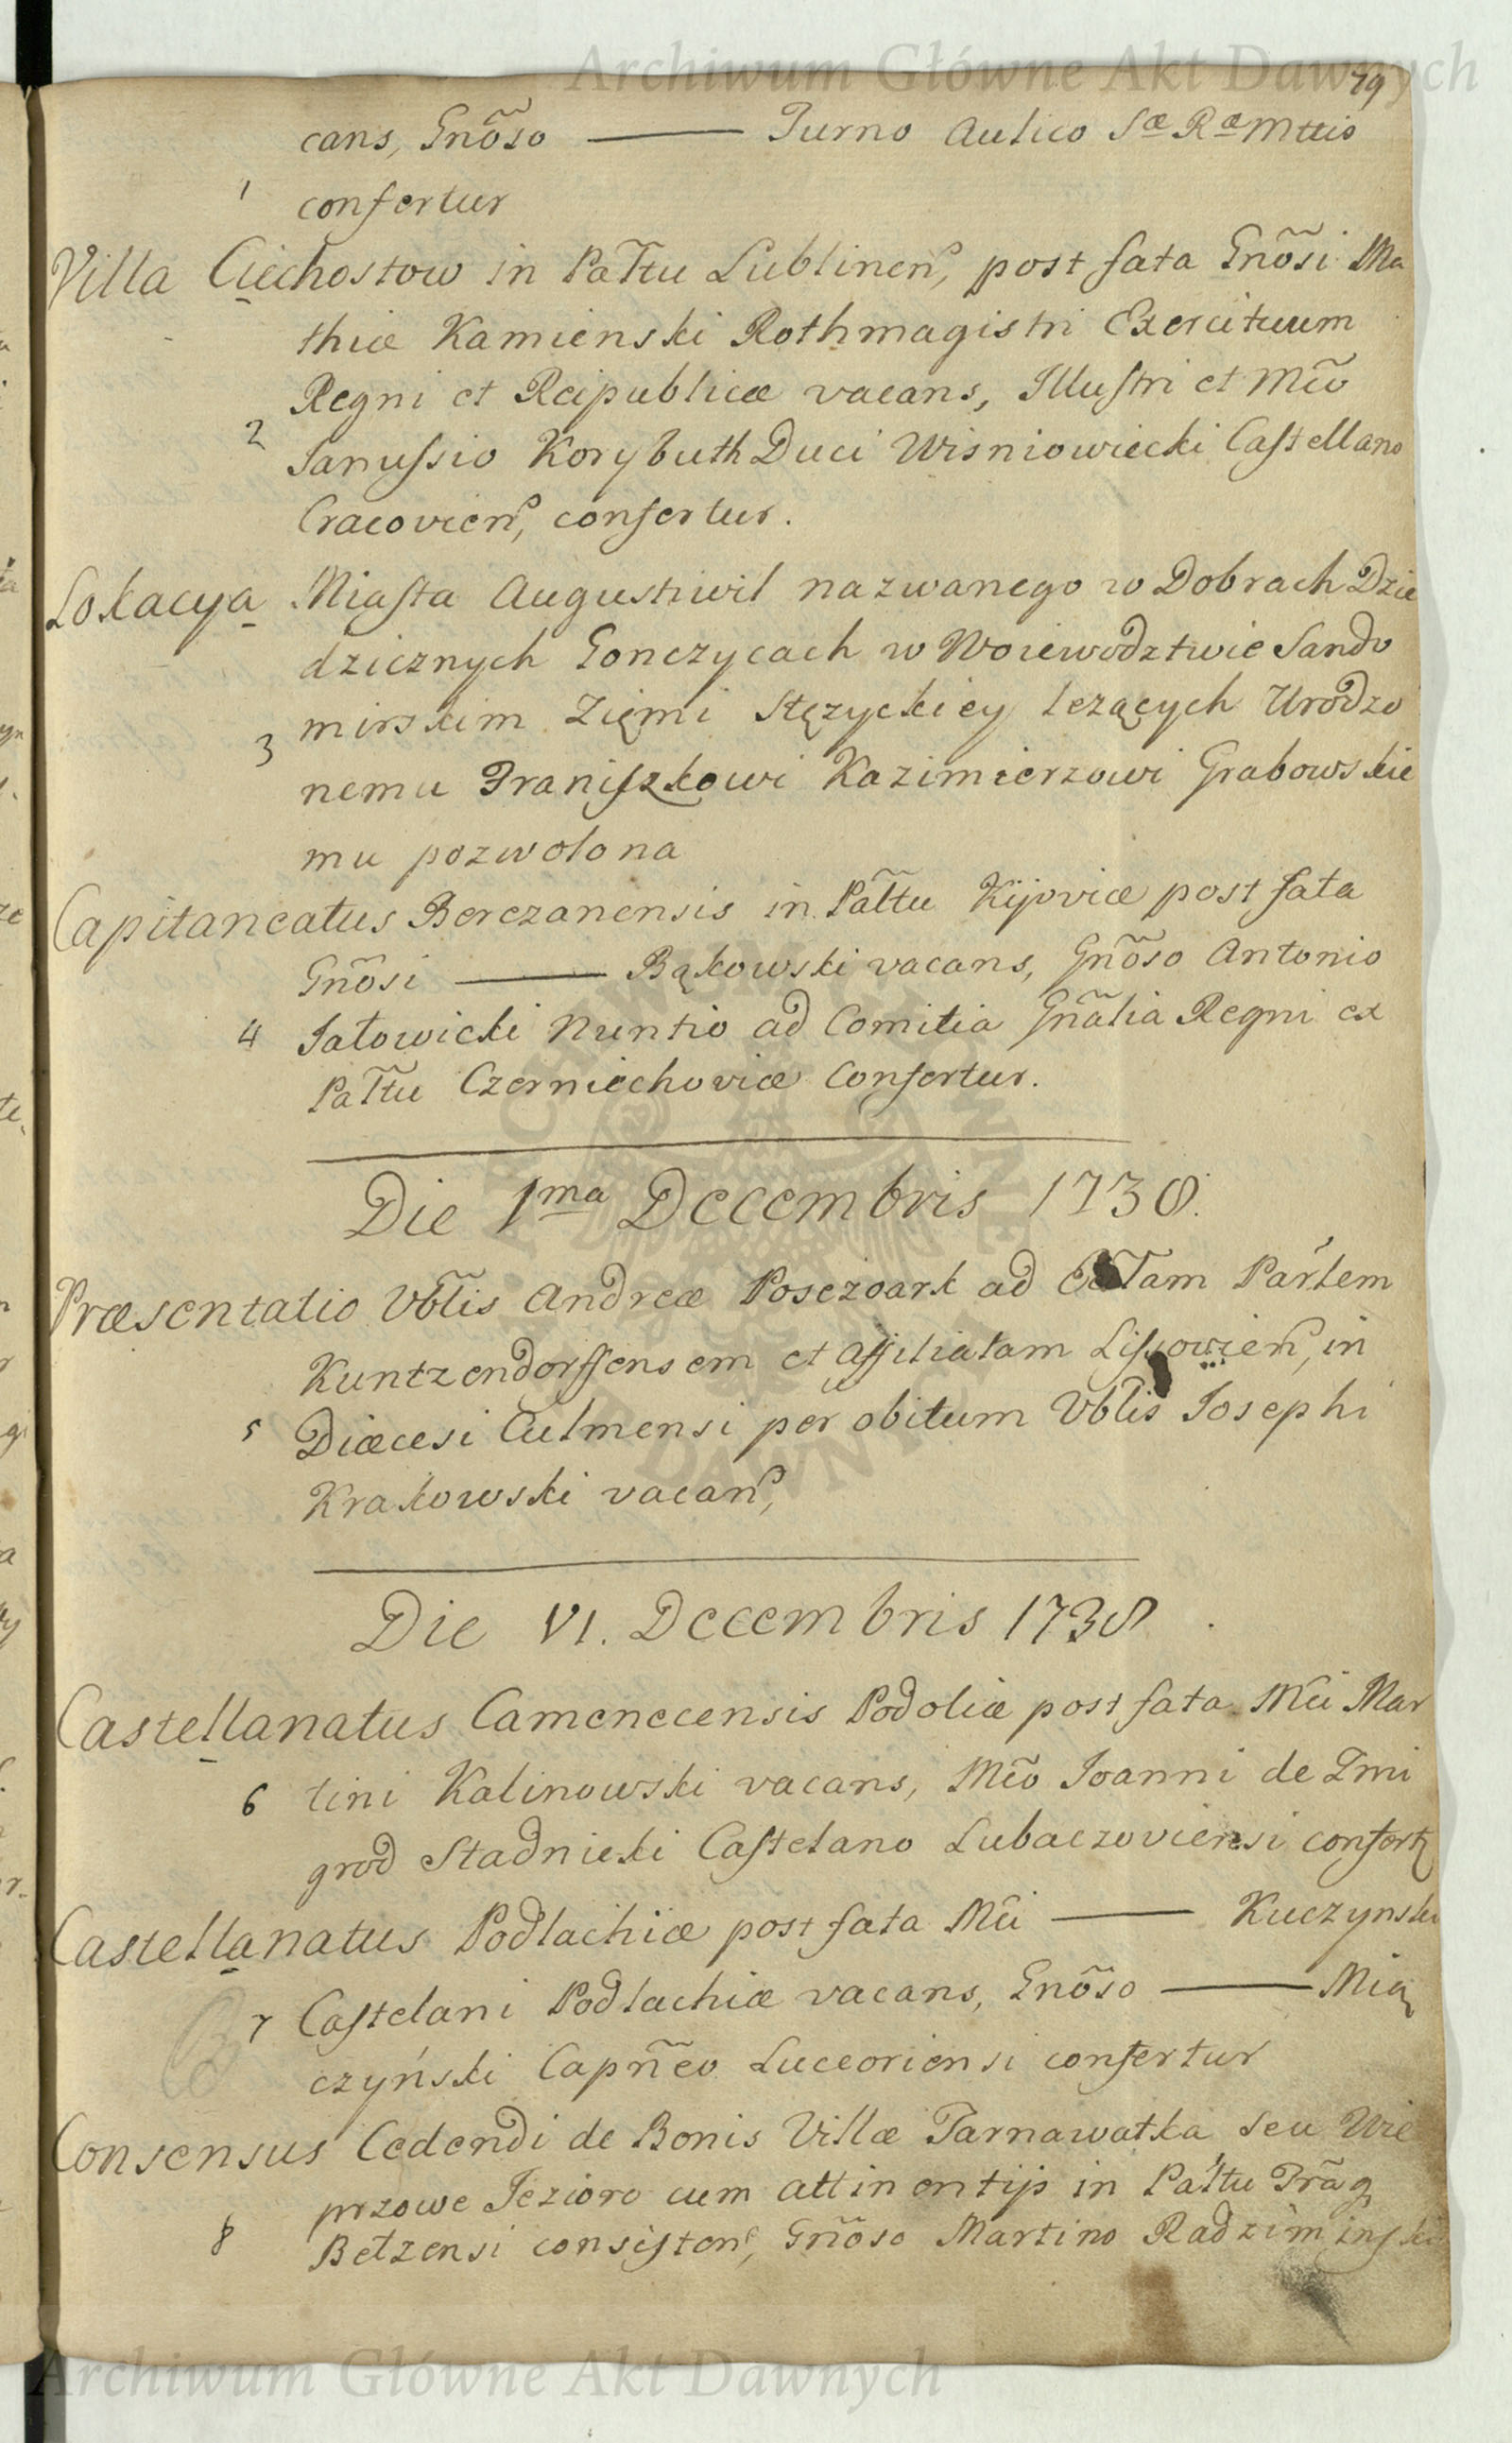 Archiwum Główne Akt Dawnych
79
cans, Gnõso —— Turno Aulico Sæ Ræ Mttis
1 confertur
Villa Ciechostow in Pal̃tu Lublinen, post fata Gnõsi Ma
thiæ Kamienski Rothmagistri Exercituum
Regni et Reipublicæ vacans, Illustri et Mc̃o
2 Janussio Korybuth Duci Wisniowiecki Castellano
Cracovien, confertur.
Lokacya Miasta Augustiwil nazwanego w Dobrach Dzie
dzicznych Gonczycach w Woiewodztwie Sando
mirskim Zięmi Stęzyckiey lezących Urodzo
3 nemu Franiszkowi Kazimierzowi Grabowskie
mu pozwolona
Capitaneatus Berezanensis in Pal̃tu Kijoviæ post fata
Gnõsi —— Bąkowski vacans, Gnõso Antonio
4 Jałowicki Nuntio ad Comitia Gnãlia Regni ex
Pal̃tu Czerniechoviæ Confertur.
Die 1ma Decembris 1738.
Præsentatio Vbl̃is Andreæ Posezoark ad Parlem
Kuntzendorffensem et affiliatam in
5 Diæcesi Culmensi per obitum Vbl̃is Josephi
Krakowski vacan,
Die VI. Decembris 1738
Castellanatus Camenecensis Podoliæ post fata Mc̃i Mar
6 tini Kalinowski vacans, Mc̃o Joanni de Zmi
grod Stadnicki Castelano Lubaczoviensi confert
Castellanatus Podlachiæ post fata Mc̃i —— Kuczynski
7 Castelani Podlachiæ vacans, Gnõso —— Mią
czyński Capñeo Luceoriensi confertur
Consensus Cedendi de Bonis Villæ Tarnawatka seu Wie
przowe Jezioro cum attinentijs in Pal̃tu
8 Bełzensi consisten, Gnõso Martino Radziminski
Archiwum Główne Akt Dawnych